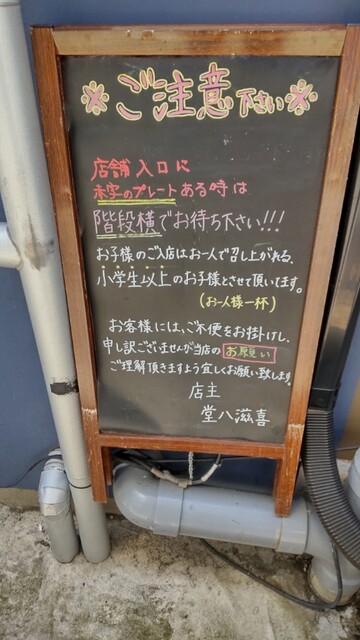 ※ご注意下さい※
店舗入口に
赤字のプレートある時は
階段横でお待ち下さい!!!
お子様のご入店はお一人で召し上がれる、
小学生以上のお子様とさせて頂いてます。
(お一人様一杯)
お客様には、ご不便をお掛けし、
申し訳ございませんが当店のお願い
ご理解頂きますよう宜しくお願い致します。
店主
堂八滋喜